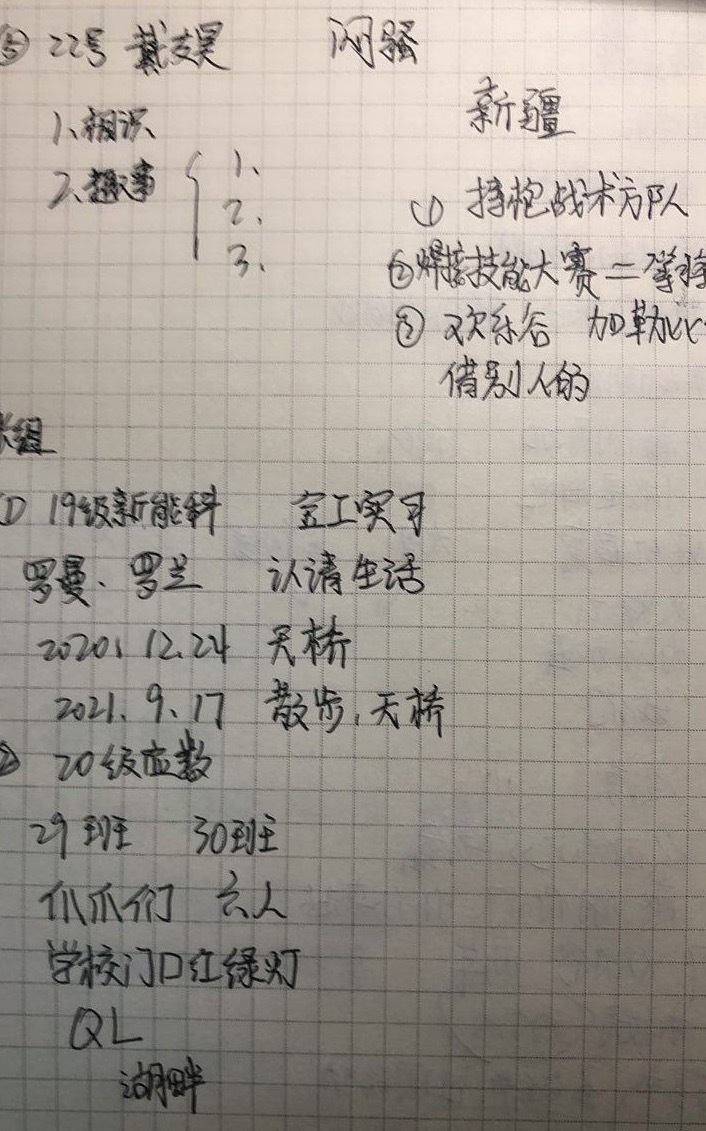 ⑤ 22号 戴 闷骚
新疆
1、相识、
2、趣事 { 1、
2、
3、
① 持枪战术方队
② 焊接技能大赛 二等
③ 欢乐谷 加勒比
借别人的
组
① 19级新能科 金工实习
罗曼、罗兰 认清生活
2020、12.24 天桥
2021、9、17 散步,天桥
② 20级应数
29班 30班
爪爪们 六人
学校门口红绿灯
QL
湖畔